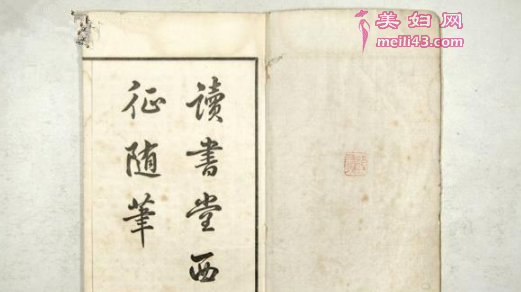 美妇网
meili43.com
讀書堂西
征随筆